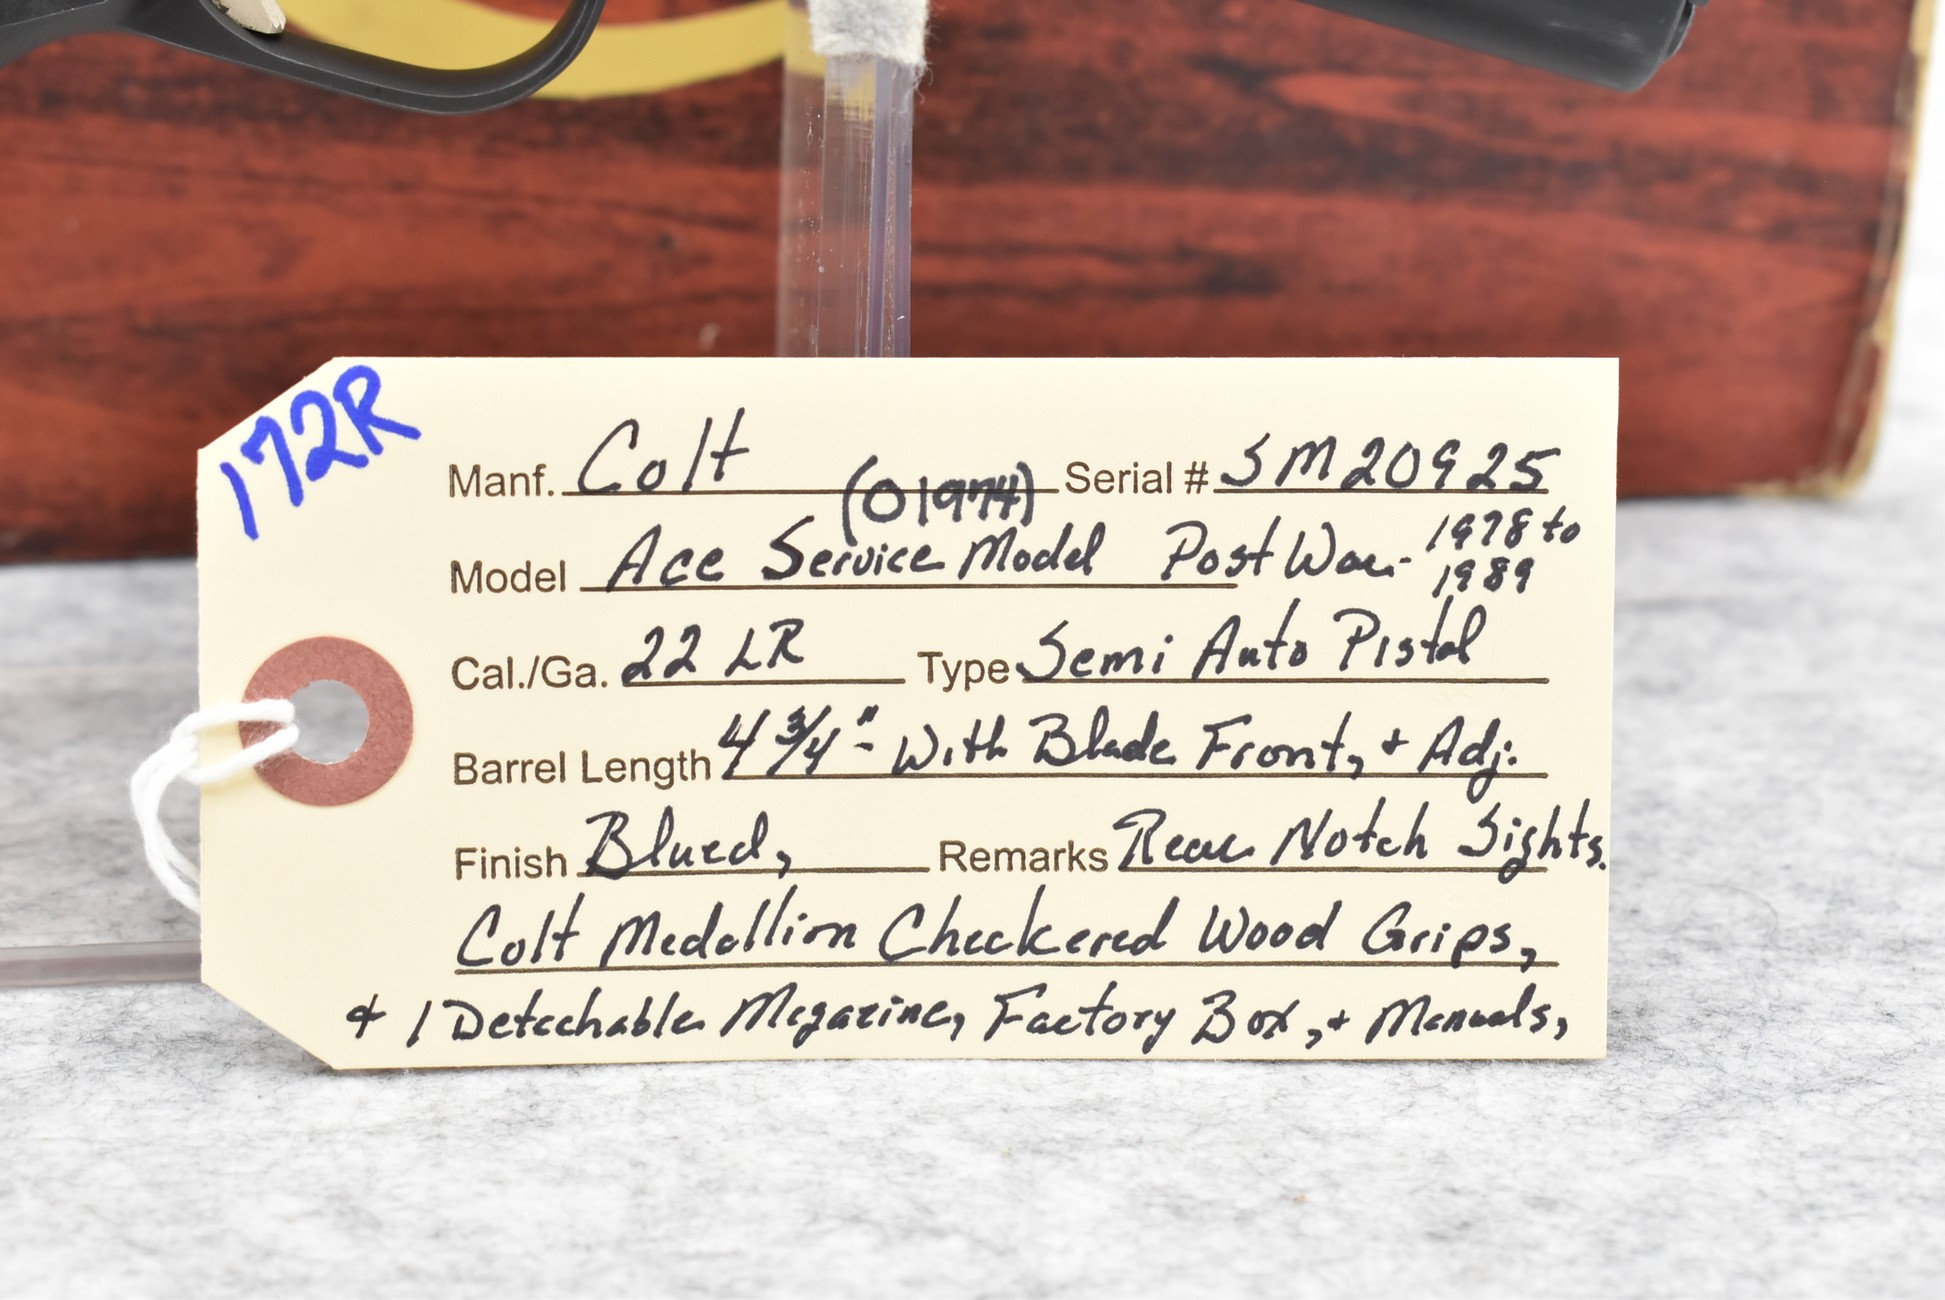 172R
Manf. Colt (01974) Serial # SM20925
Model Ace Service Model Post War - 1978 to 1989
Cal./Ga. 22 LR Type Semi Auto Pistol
Barrel Length 4 3/4" - With Blade Front, + Adj.
Finish Blued, Remarks Rear Notch Sights.
Colt Medallion Checkered Wood Grips,
+ 1 Detachable Magazine, Factory Box, + Manuals,